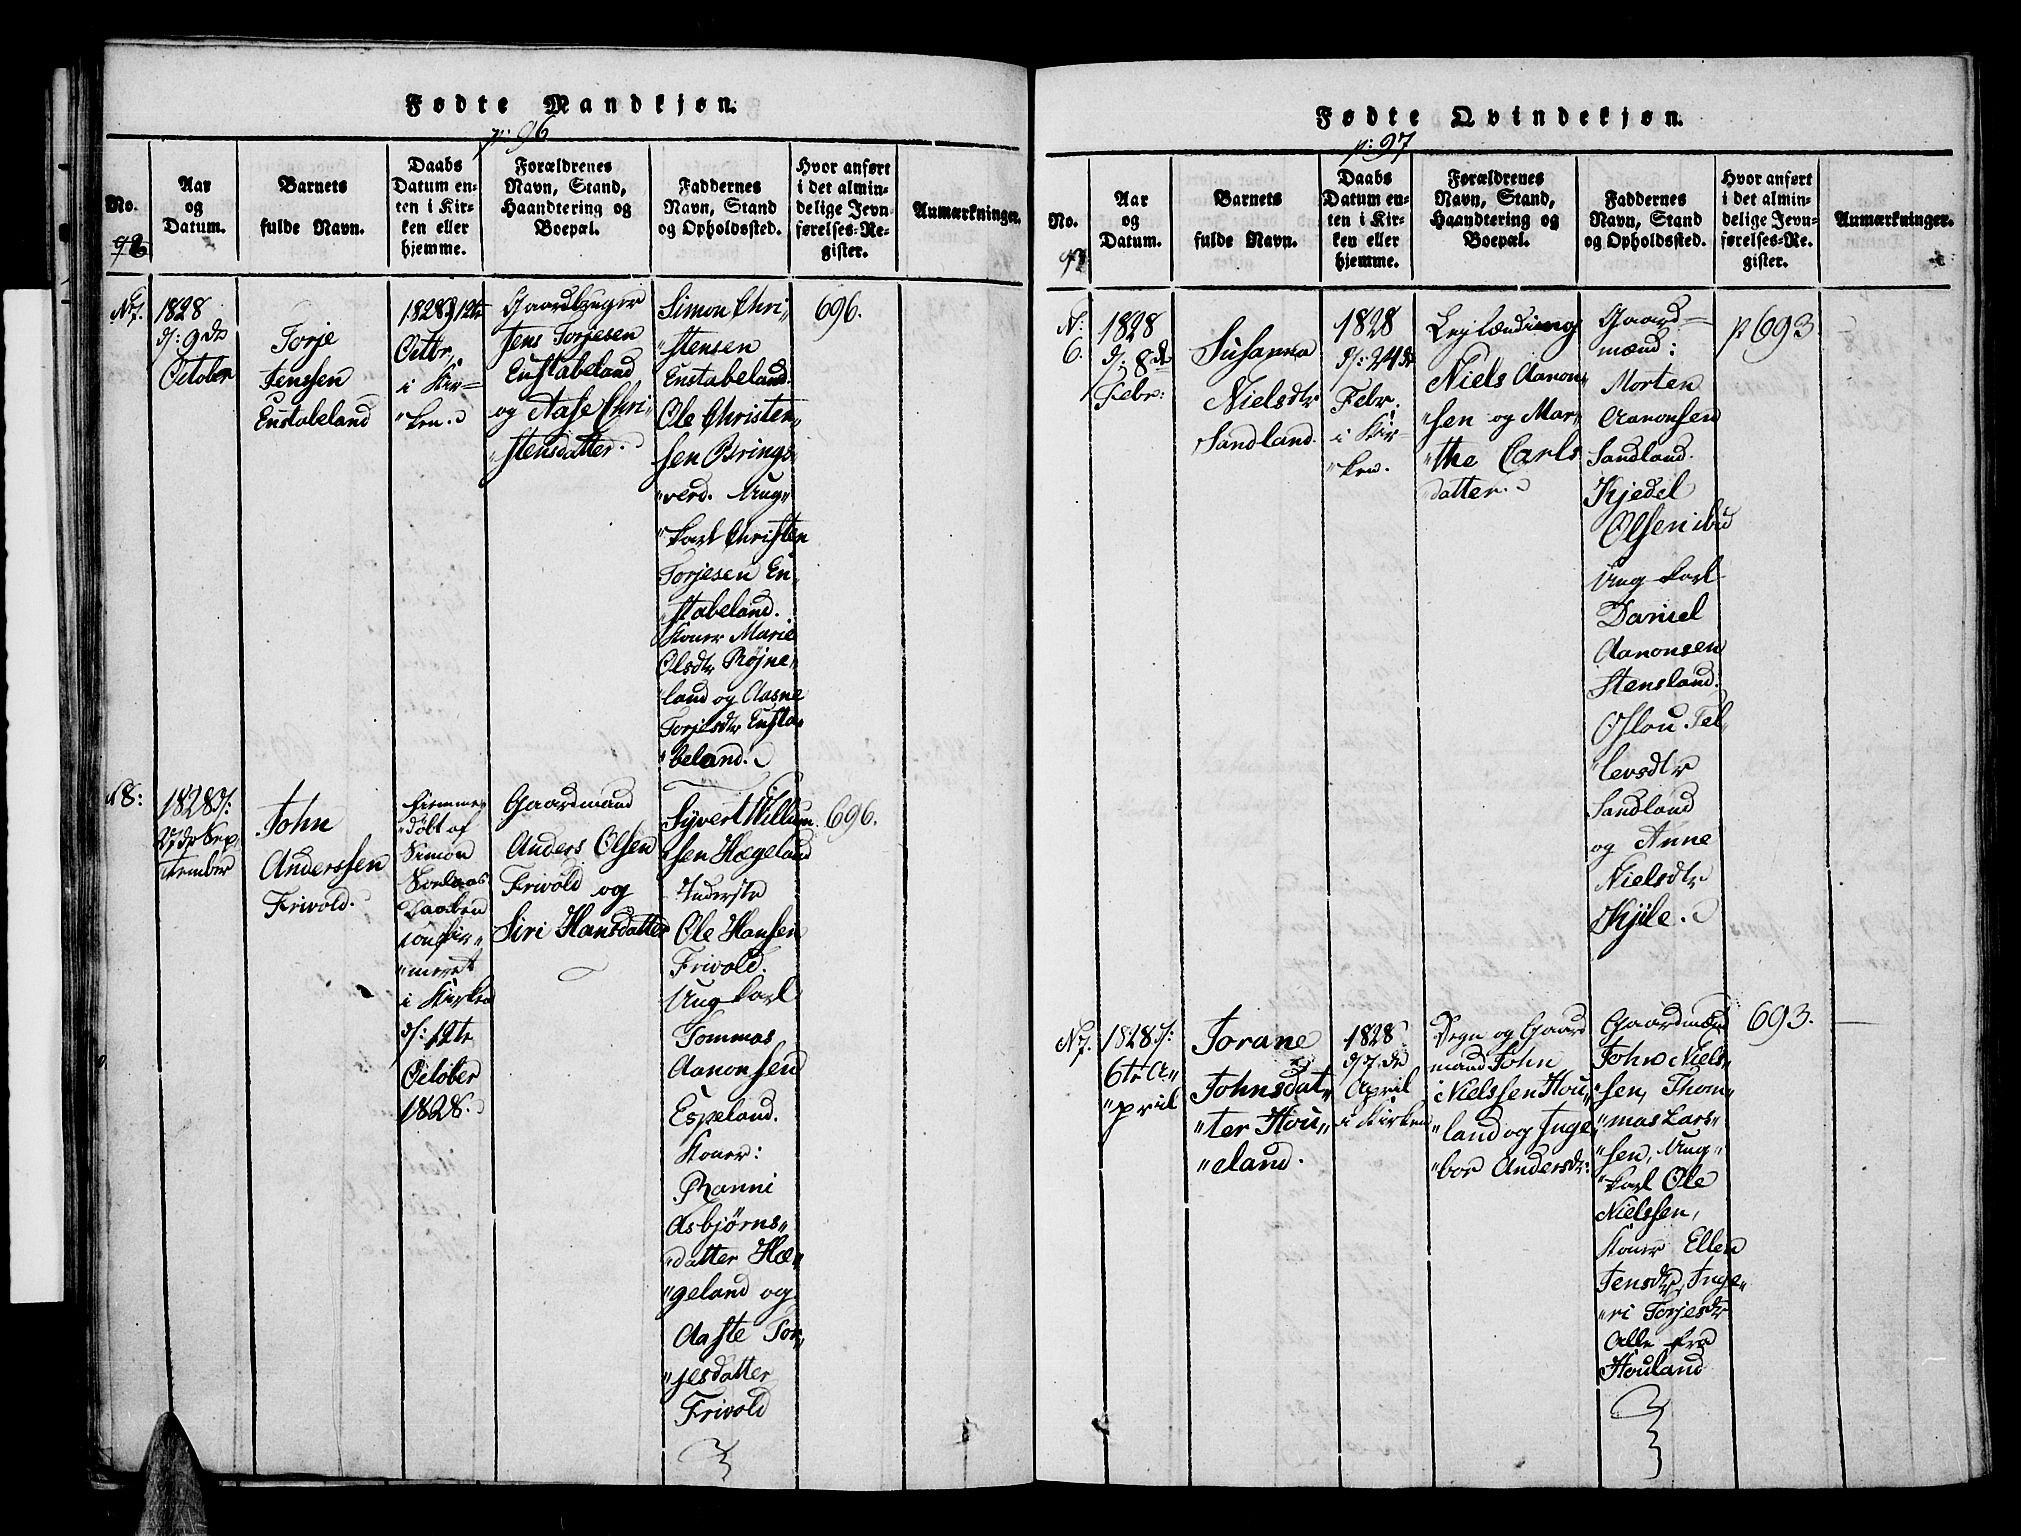 Fødte Mandkjøn.
p: 96
No.
Aar
og
Datum.
Barnets
fulde Navn.
Daabs
Datum en-
ten i Kir-
ken eller
hjemme.
Forældrenes
Navn, Stand,
Haandtering og
Boepæl.
Faddernes
Navn, Stand
og Opholdssted.
Hvor anført
i det almin-
delige Jevn-
førelses-Re-
gister.
Anmærkninger.
N 7.
1828
d: 9de
October
Torje
Jenssen
Enstabeland
1828 d 12te
Octbr,
i Kir-
"ken.
Gaardbruger
Jens Torjesen
Enstabeland
og Aase Chri-
"stensdatter.
Simon Chri-
"stensen
Enstabeland.
Ole Christen-
sen Brings-
"verd. Ung-
"karl Christen
Torjesen En-
"stabeland.
Koner Marie
Olsdtr Røjne-
"land og Aasne
Torjesdtr Ensta-
"beland.
696.
N 8:
1828 d:
27de Sep-
tember
John
Anderssen
Frivold.
hjemme-
"døbt af
Simon
Daaben
confir-
"meret
i Kirken
d: 12te
October
1828.
Gaardmand
Anders Olsen
Frivold og
Siri Hansdatter
Syvert Willum-
sen Hægeland
Inderste
Ole Hansen
Frivold.
Ung karl
Tommas
Aanonsen
Espeland.
Koner:
Ranni
Asbjørns-
"datter Hæ-
"geland og
Aaste Tor-
"jesdatter
Frivold
696.
Fødte Qvindekjøn.
p: 97
No.
Aar
og
Datum.
Barnets
fulde Navn.
Daabs
Datum en-
ten i Kir-
ken eller
hjemme.
Forældrenes
Navn, Stand,
Haandtering og
Boepæl.
Faddernes
Navn, Stand
og Opholdssted.
Hvor anført
i det almin-
delige Jevn-
førelses-Re-
gister.
Anmærkninger.
N:
6.
1828
d: 8de
Febr:
Susanna
Nielsdtr
Sandland.
1828
d: 24de
Febr.
i Kir-
"ken.
Leylænding
Niels Aanon-
"sen og Mar-
"the Carls
datter.
Gaard-
mænd:
Morten
Aanonsen
Sandland.
Kjedel
Olsen ibid
Ung karl
Daniel
Aanonsen
Stensland.
Oslou Tel-
"levsdtr
Sandland
og Anne
Nielsdtr
Kjile.
p 693
N 7.
1828 d:
6te A-
"pril
Torane
Johnsdat-
"ter Hou-
"eland.
1828
d 7de
April
i Kirken
Degn og Gaard
mand John
Nielssen Hou-
"land og Inge
"bor Andersdtr:
Gaardmænd
John Niels-
"sen, Thom-
"mas Lars-
"sen, Ung-
"karl Ole
Nielssen,
Koner Ellen
Jensdtr, Inge-
"ri Torjesdtr
Alle fra
Houland
693.